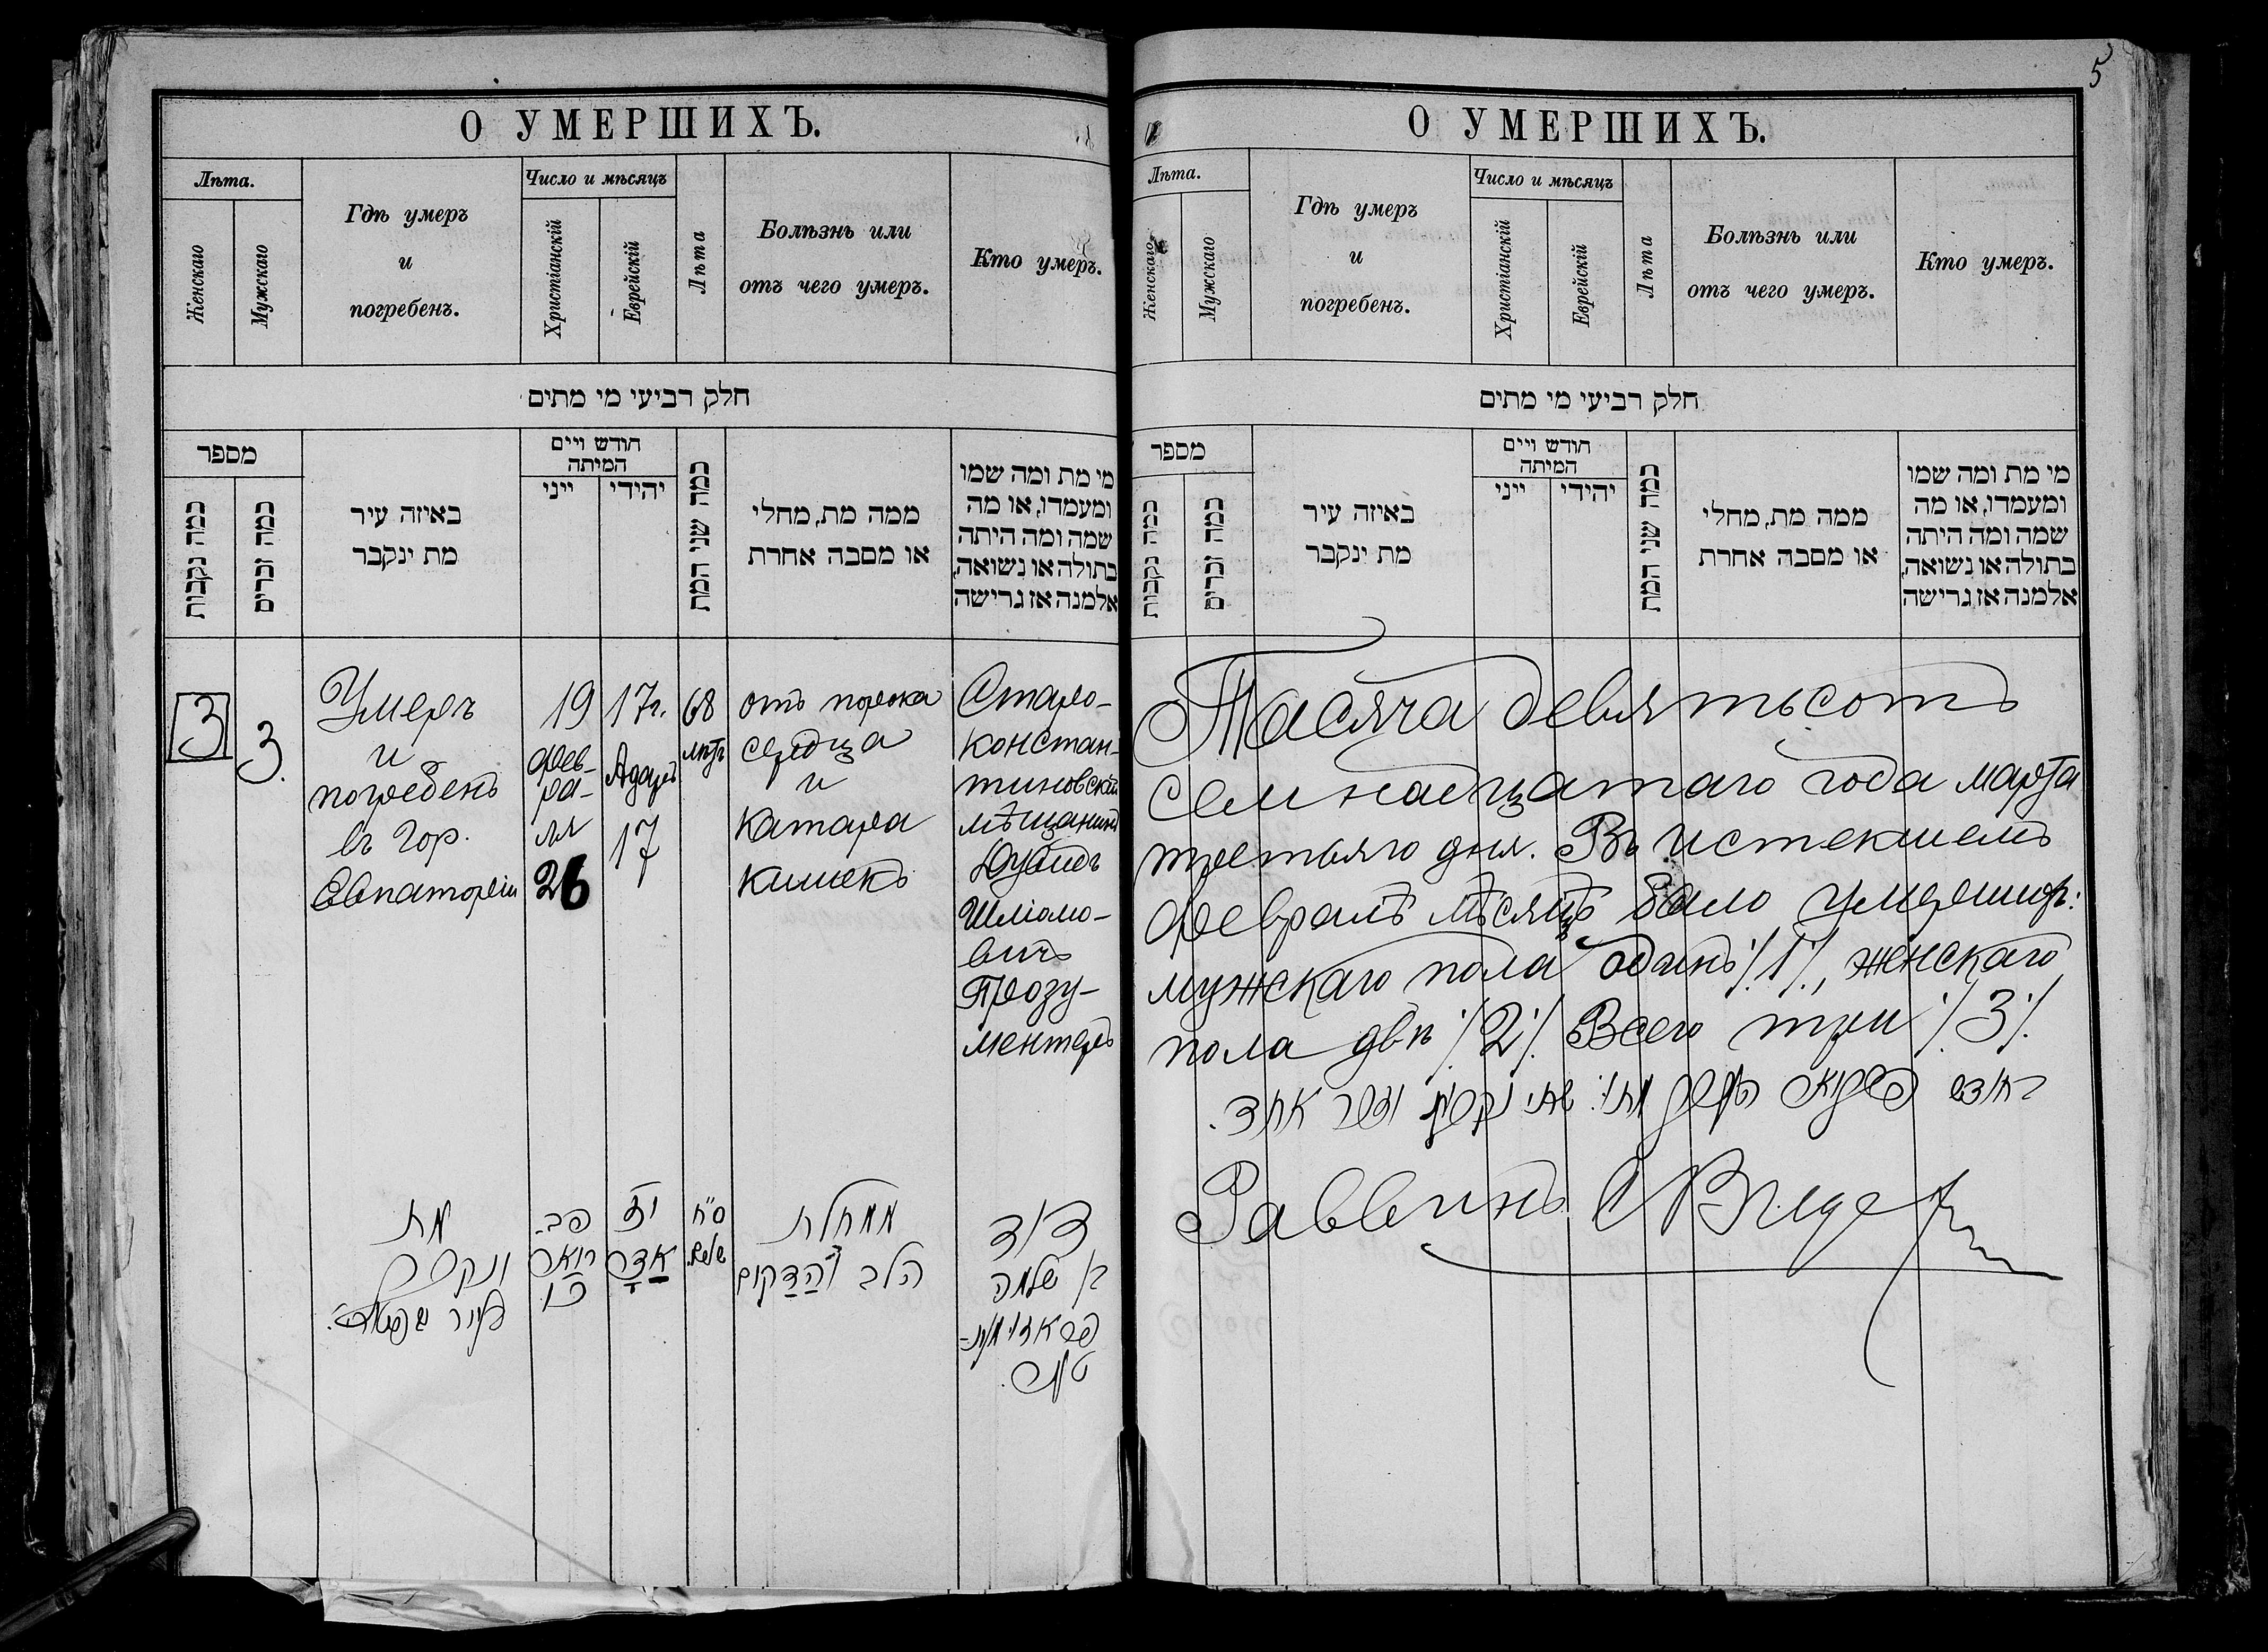 О УМЕРШИХЪ.
Лѣта.
Женскаго
Мужскаго
Гдѣ умеръ
и
погребенъ.
Число и мѣсяцъ
Христіанскій
Еврейскій
Лѣта
Болѣзнь или
отъ чего умеръ.
Кто умеръ.
חלק רביעי מי מתים
מספר
כמה נקבות
כמה זכרים
באיזה עיר
מת ינקבר
חודש ויים
המיתה
ייני
יהידי
כמה שני המת
ממה מת, מחלי
או מסבה אחרת
מי מת ומה שמו
ומעמדו, או מה
שמה ומה היתה
בתולה או נשואה,
אלמנה אז גרישה
3
3.
Умеръ
и
погребенъ
въ гор.
Евпаторіи
19
фев-
ра-
ля
26
17г.
Адаръ
17
68
лѣтъ
отъ порока
сердца
и
катара
кишекъ
Старо-
констан-
тиновскій
мѣщанинъ
Дувидъ
Шліомо-
вичъ
Прозу-
ментеръ
מת
ונקבר
בעיר
פב-
רואר
כו.
יז
אדר
ס״ח
ממחלת
הלב והדקים
דוד
בן שלמה
О УМЕРШИХЪ.
5
Лѣта.
Женскаго
Мужскаго
Гдѣ умеръ
и
погребенъ.
Число и мѣсяцъ
Христіанскій
Еврейскій
Лѣта
Болѣзнь или
отъ чего умеръ.
Кто умеръ.
חלק רביעי מי מתים
מספר
כמה נקבות
כמה זכרים
באיזה עיר
מת ינקבר
חודש ויים
המיתה
ייני
יהידי
כמה שני המת
ממה מת, מחלי
או מסבה אחרת
מי מת ומה שמו
ומעמדו, או מה
שמה ומה היתה
בתולה או נשואה,
אלמנה אז גרישה
Тысяча девятьсотъ
семнадцатаго года марта
третьяго дня. Въ истекшемъ
февралѣ мѣсяцѣ было умершихъ:
мужскаго пола одинъ /1/, женскаго
пола двѣ /2/. Всего три /3/.
שתי נקבות וזכר אחד.
Раввинъ